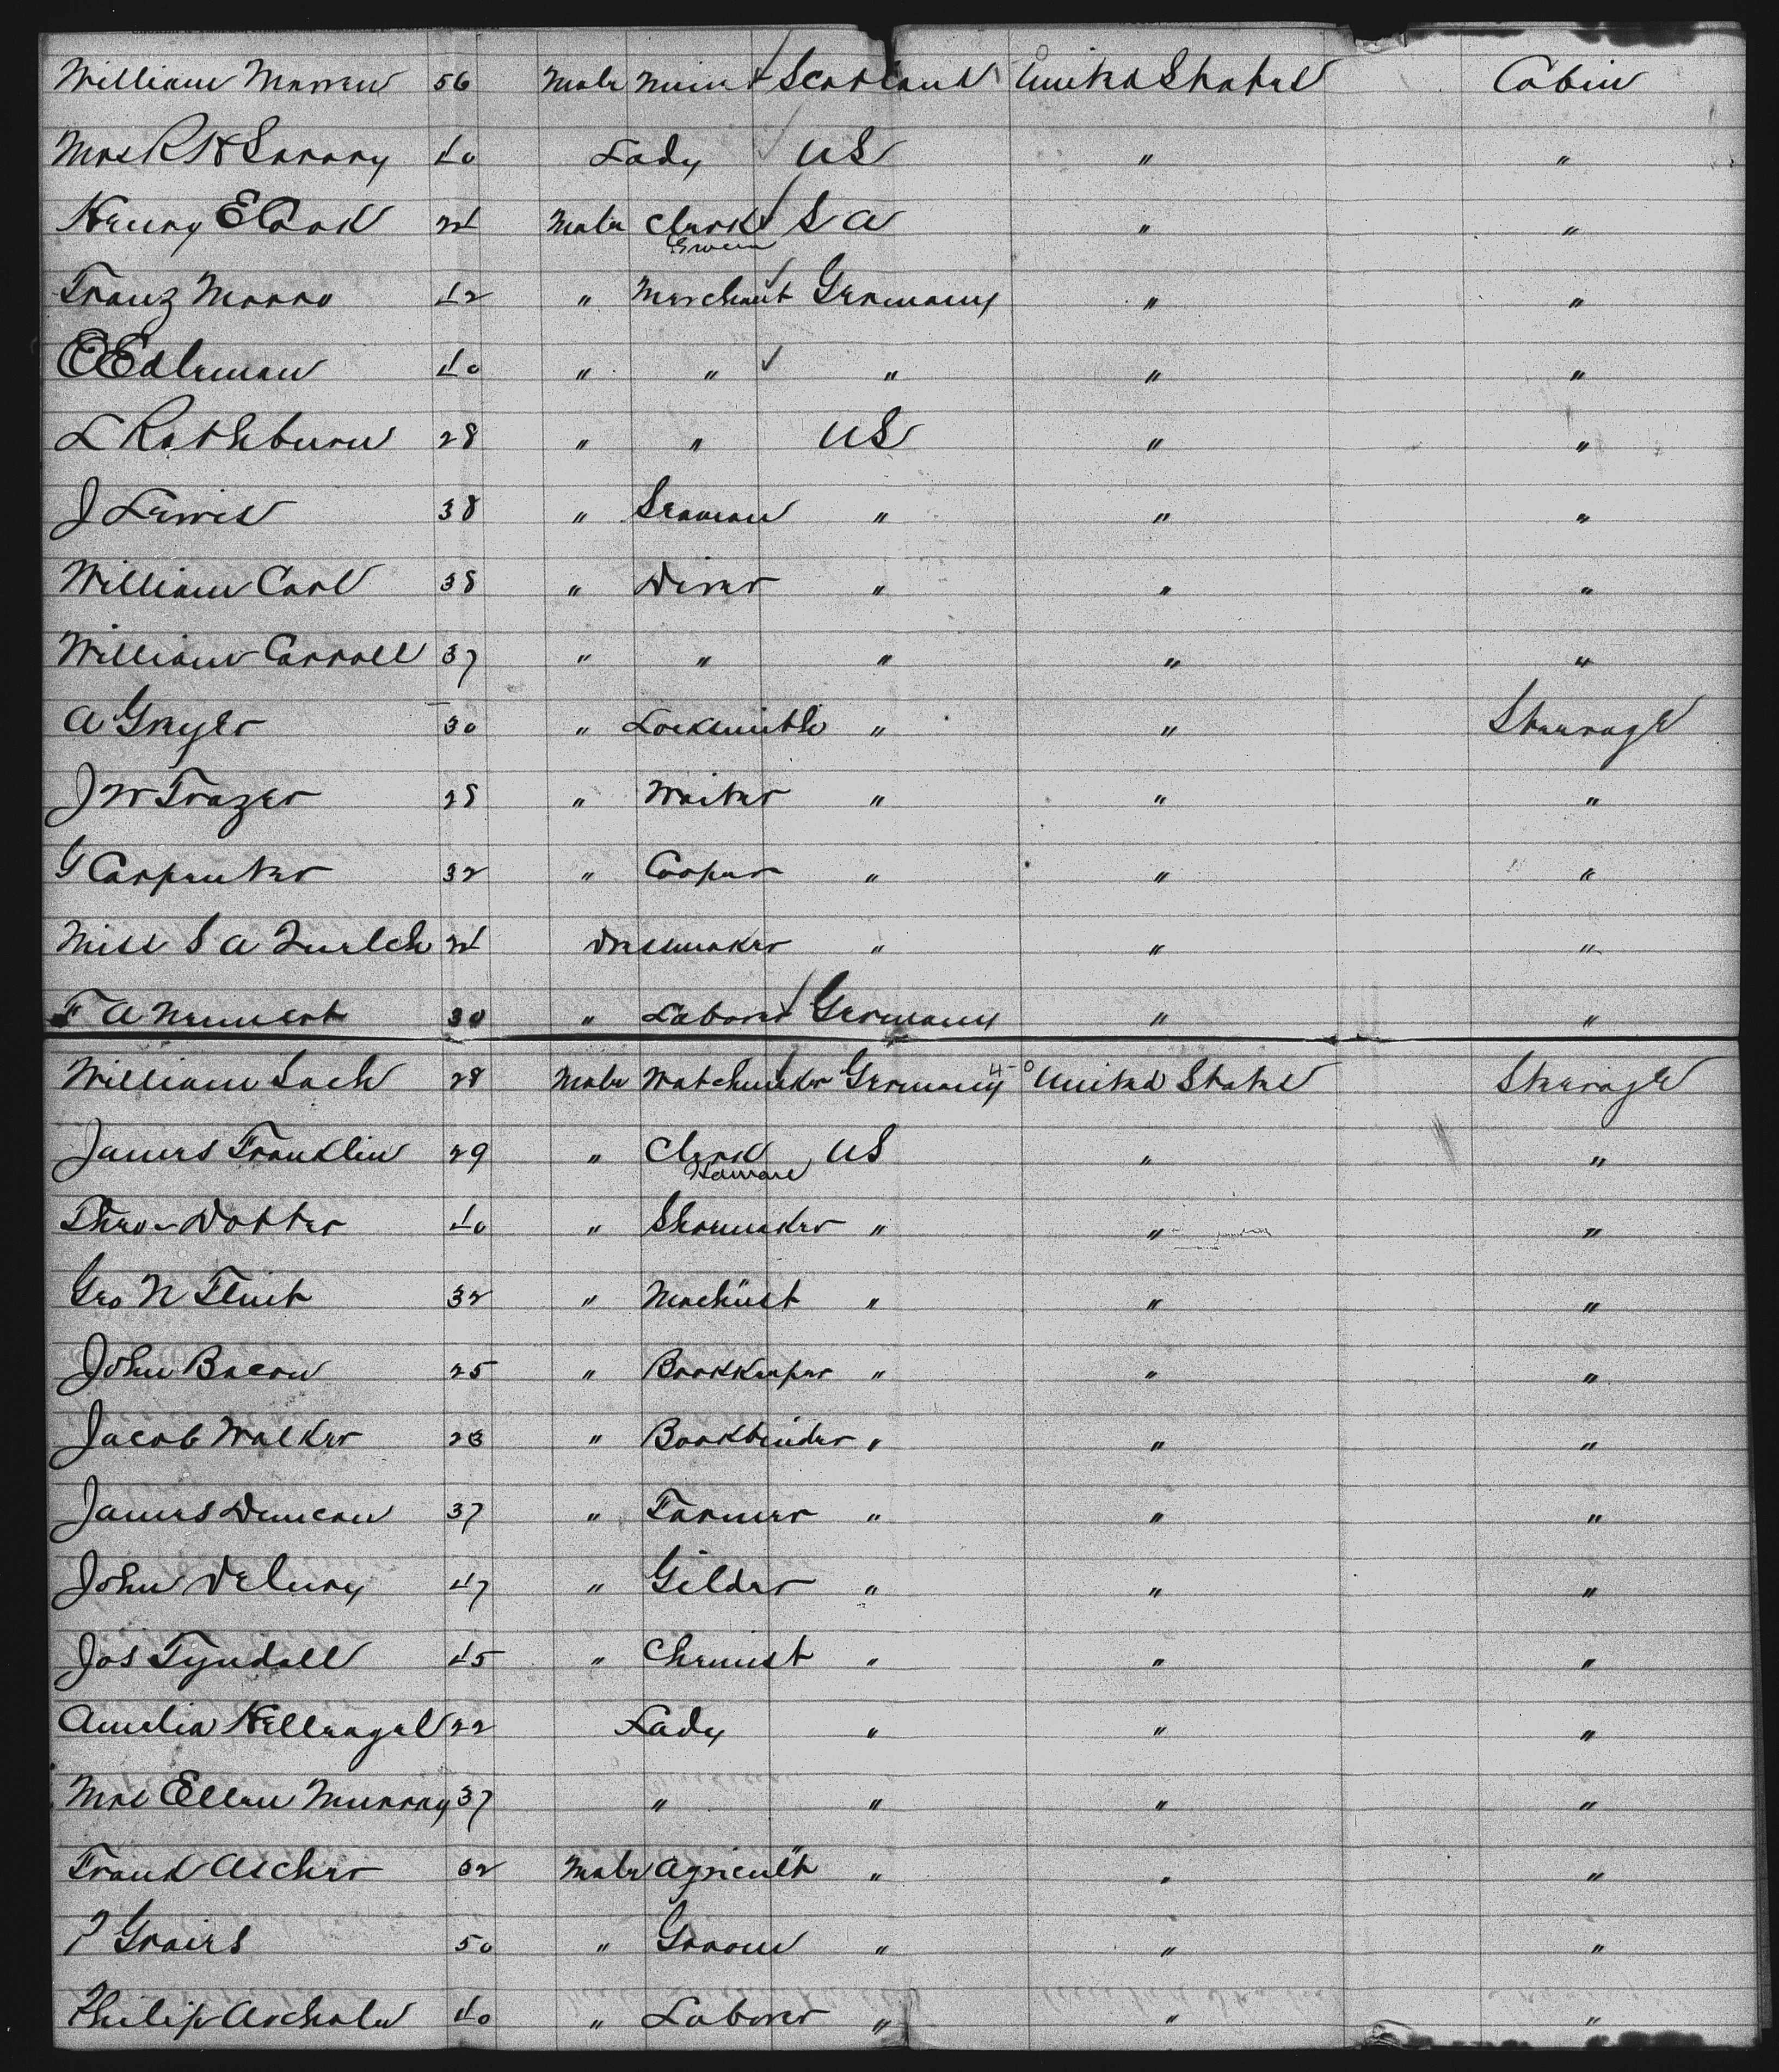 William Morrew 56 Male Minr Scotland United States Cabin
Mrs R H Savary 40 Lady US " "
Henry E Cook 24 Male Clerk S A " "
Grocer
Franz Morro 42 " Merchant Germany " "
O Edleman 40 " " " " "
L Rathburn 28 " " US " "
J Lewis 38 " Seaman " " "
William Carl 38 " Diver " " "
William Carroll 37 " " " " "
A Gryer 30 " Locksmith " " Steerage
J W Frazer 28 " Waiter " " "
G Carpenter 32 " Cooper " " "
Miss S A 24 Dressmaker " " "
F A 30 " Laborer Germany " "
William Sach 28 Male Watchmaker Germany United States Steerage
James Franklin 29 " Clerk US " "
Theo Dotter 40 " Shoemaker " " "
Geo N Flint 32 " Machinist " " "
John Bacon 25 " Bookkeeper " " "
Jacob Walker 28 " Bookbinder " " "
James Duncan 37 " Farmer " " "
John Delury 47 " Gilder " " "
Jos Tyndall 45 " Chemist " " "
Amelia Hellnagel 22 Lady " " "
Mrs Ellen Murray 37 " " " "
Frank Ascher 32 Male Agricult " " "
P Grairs 50 " Groom " " "
Philip Archolw 40 " Laborer " " "